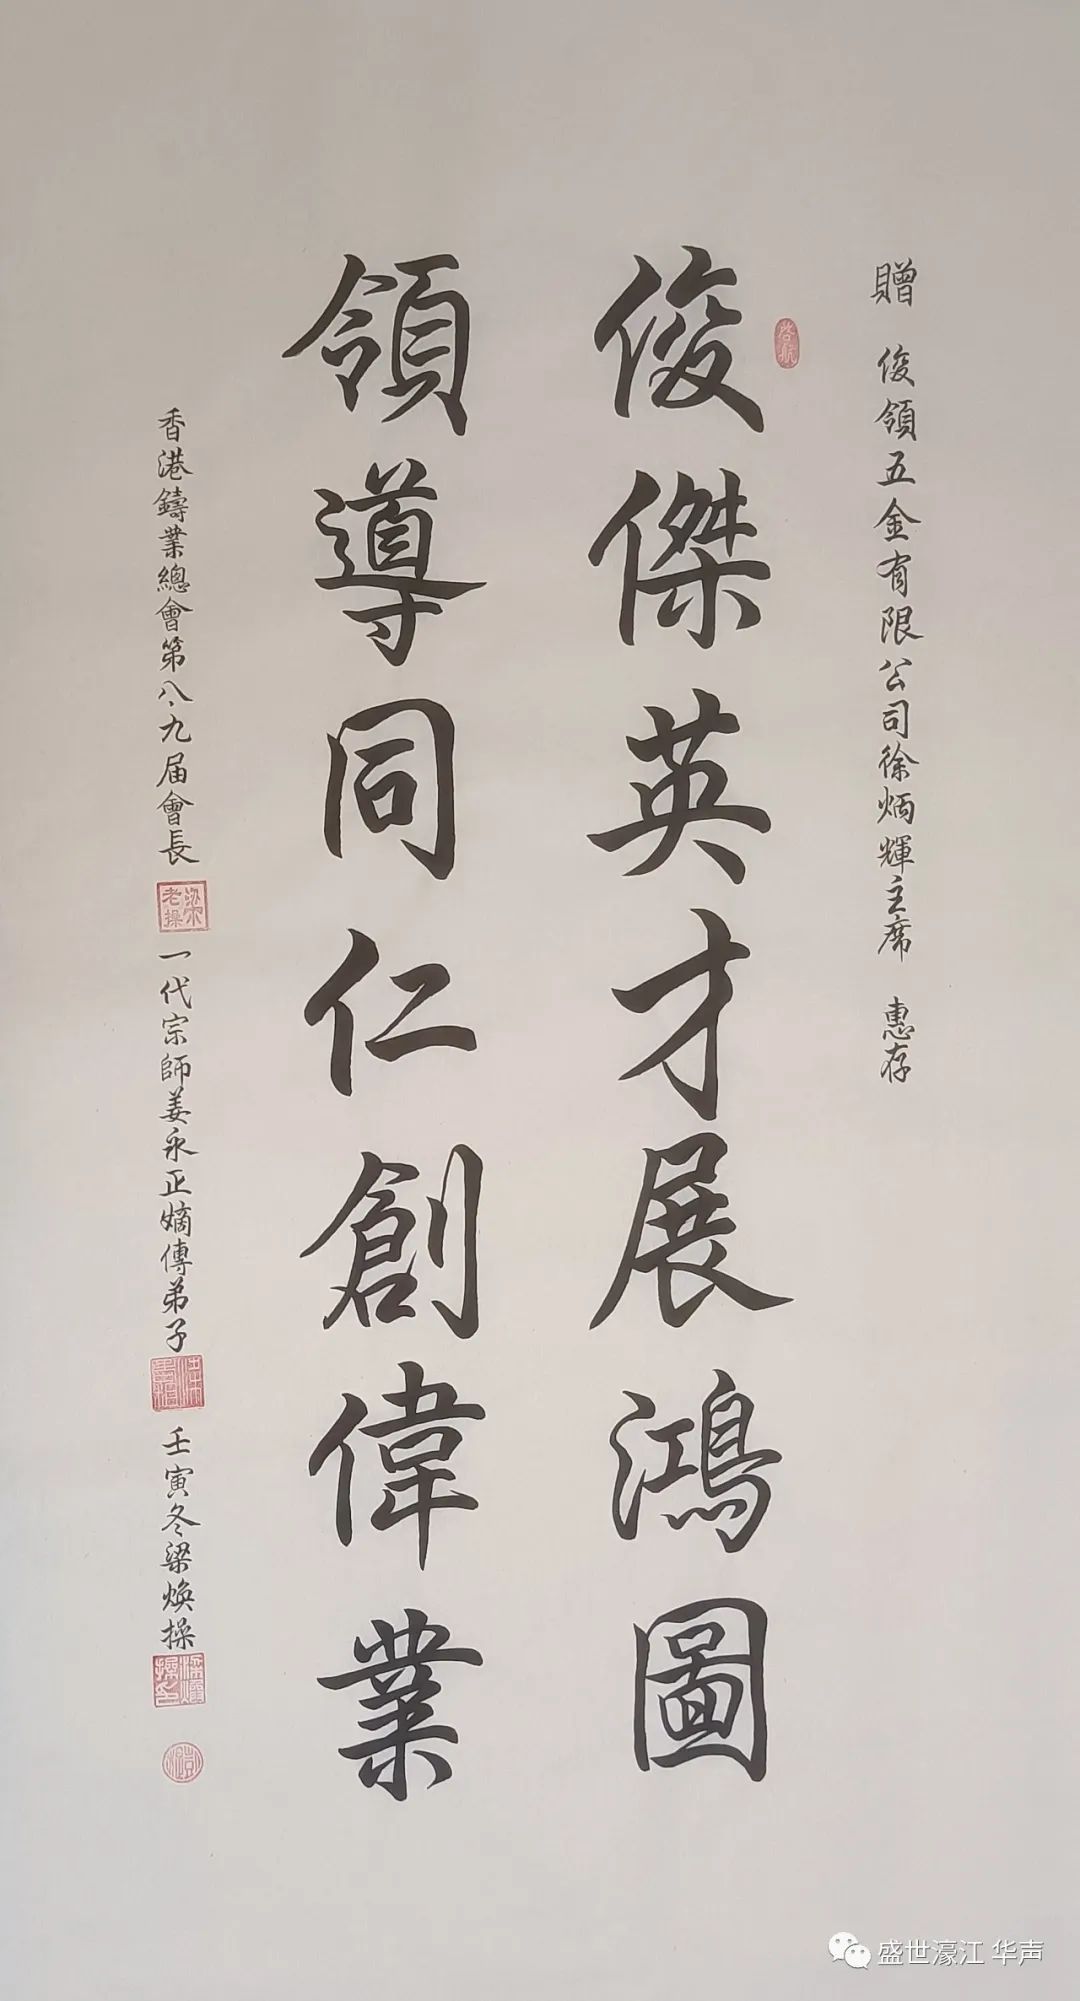 贈 俊領五金有限公司徐炳輝主席 惠存
啓航
俊傑英才展鴻圖
領導同仁創偉業
香港鑄業總會第八、九届會長
梁老操
一代宗師姜永正嫡傳弟子
壬寅冬梁煥操
盛世濠江 华声